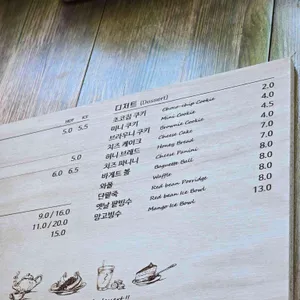 HOT ICE
5.0 5.5
5.0
6.0 6.5
9.0 / 16.0
11.0 / 20.0
15.0
디저트 (Dessert)
초코칩 쿠키 Choco-chip Cookie 2.0
미니 쿠키 Mini Cookie 4.0
브라우니 쿠키 Brownie Cookie 4.5
치즈 케이크 Cheese Cake 4.0
허니 브레드 Honey Bread 7.0
치즈 파니니 Cheese Panini 7.0
바게트 볼 Baguette Ball 8.0
와플 Waffle 8.0
단팥죽 Red bean Porridge 8.0
옛날 팥빙수 Red bean Ice Bowl 8.0
망고빙수 Mango Ice Bowl 13.0